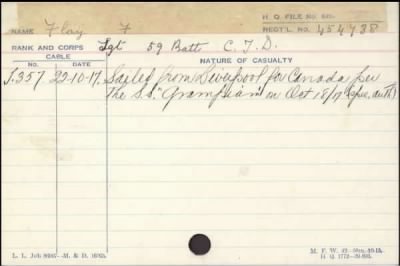 H. Q. FILE No. 649-
NAME Flay F REGT'L. NO. 454738
RANK AND CORPS Sgt 59 Batt C. T. D.
CABLE NATURE OF CASUALTY
NO. DATE
S.357 22-10-17. Sailed from Liverpool for Canada per
the S.S. "Grampian" on Oct 18/17 (spec. auth)
L. L. Job 8997- M. & D. 10/15. M. F. W. 42
H Q 1772-39-893.